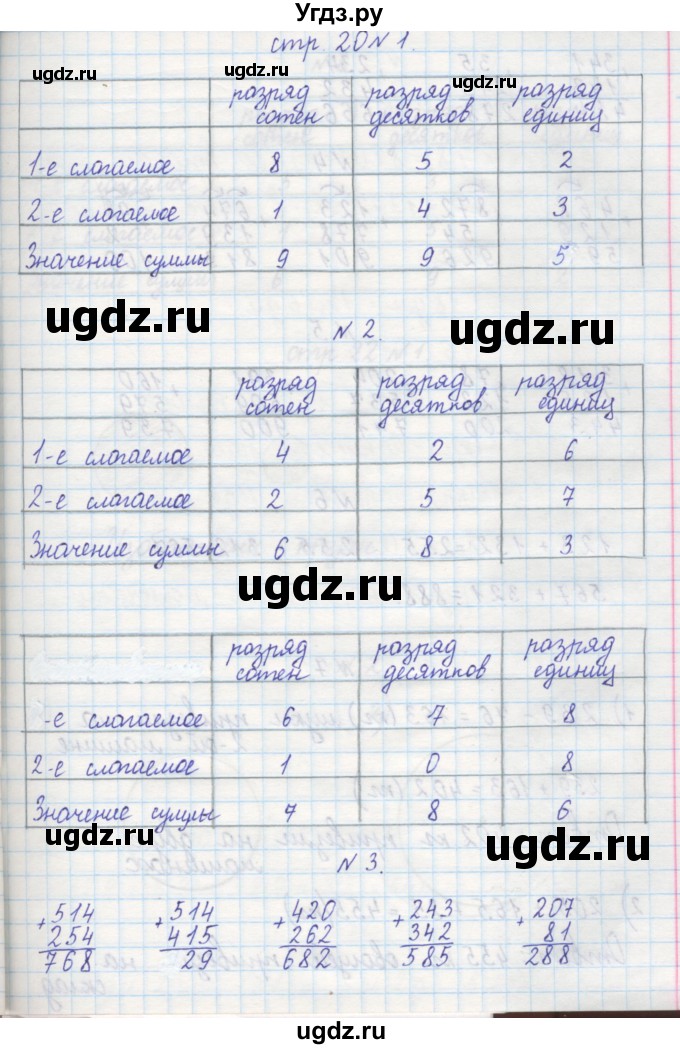 Угдз.ру
стр. 20 № 1.
ugdz.ru ugdz.ru ugdz.ru
разряд сотен разряд десятков разряд единиц
1-е слагаемое 8 5 2
2-е слагаемое 1 4 3
Значение суммы 9 9 5
ugdz.ru ugdz.ru
№ 2.
разряд сотен разряд десятков разряд единиц
1-е слагаемое 4 2 6
2-е слагаемое 2 5 7
Значение суммы 6 8 3
ugdz.ru
разряд сотен разряд десятков разряд единиц
-е слагаемое 6 7 8
2-е слагаемое 1 0 8
Значение суммы 7 8 6
ugdz.ru ugdz.ru
№ 3.
+514 +514 +420 +243 +207
254 415 262 342 81
768 29 682 585 288
ugdz.ru ugdz.ru ugdz.ru
ugdz.ru